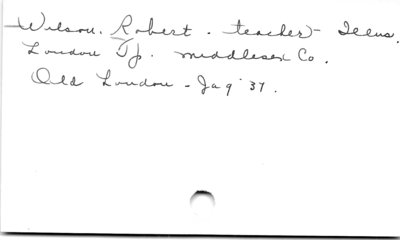 Wilson, Robert. teacher - Illus.
London Tp. Middlesex Co.
Old London - Jag '37.